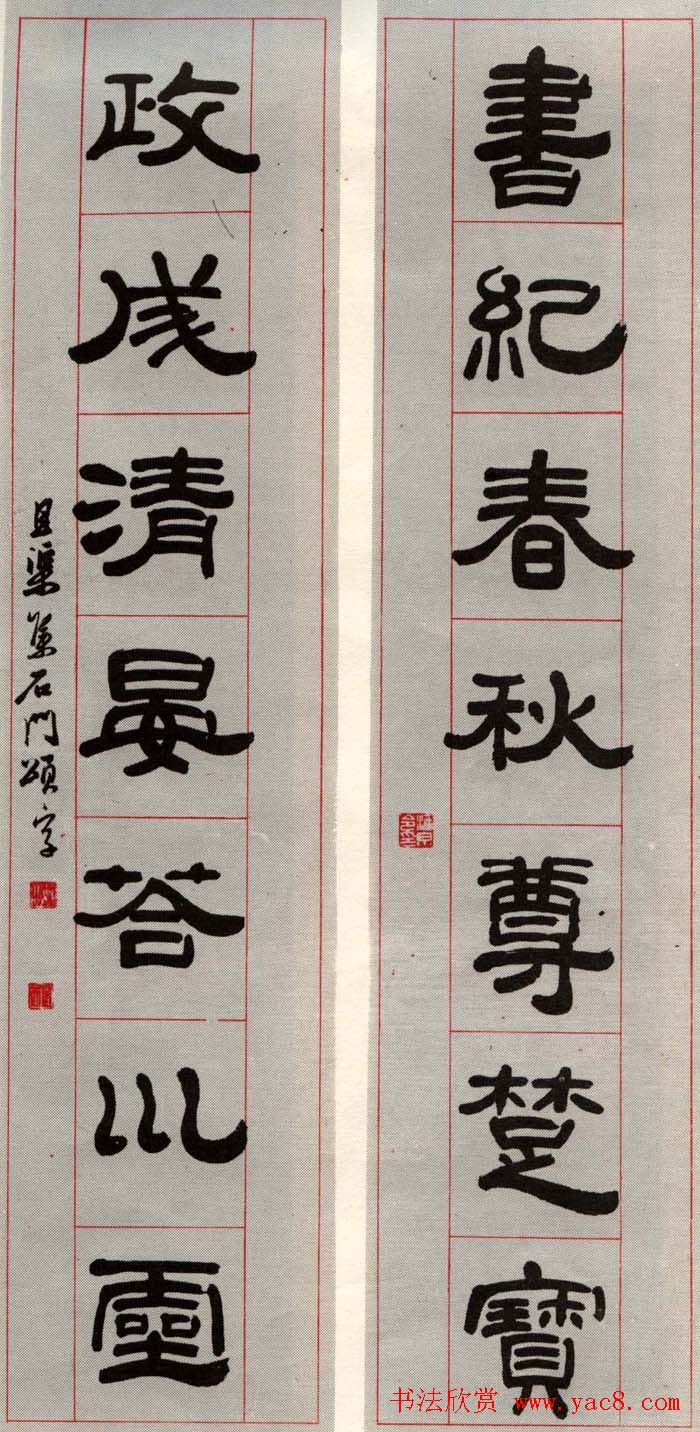 書紀春秋尊楚寶
政成清晏荅川靈
且渠集石門頌字
书法欣赏 www.yac8.com